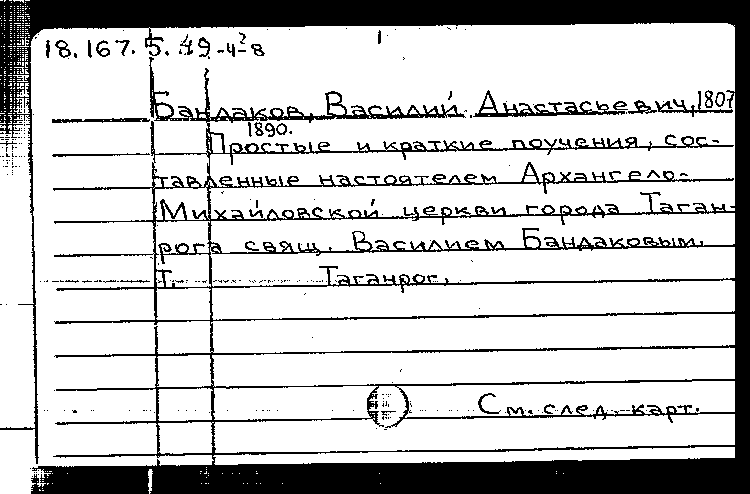 18.167.5.49-4²-8
Бандаков, Василий Анастасьевич, 1807
1890.
Простые и краткие поучения, сос-
тавленные настоятелем Архангело-
Михайловской церкви города Таган-
рога свящ. Василием Бандаковым.
Т. Таганрог,
См. след. карт.